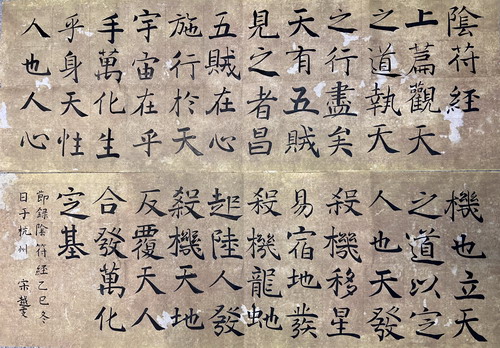 陰符經
上篇觀天
之道執天
之行盡矣
天有五賊
見之者昌
五賊在心
施行於天
宇宙在乎
手萬化生
乎身天性
人也人心
機也立天
之道以定
人也天發
殺機移星
易宿地發
殺機龍虵
起陸人發
殺機天地
反覆天人
合發萬化
定基
節錄陰符經乙巳冬
日于杭州 宋